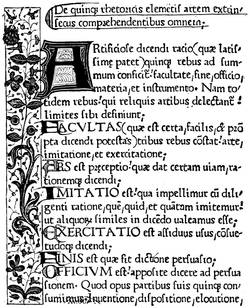 De quinq; rhetoricis elemētis artem extrin
secus compraehendentibus omnem.
ARtificiose dicendi ratio (quæ latis
sime patet) quinq; rebus ad sum
mum conficit: facultate, fine, officio,
materia, et instrumēto. Nam to
tidem rebus reliquis artibus delectant
limites sibi definiunt.
FACULTAS (quæ est certa, facilis, & prō
pta dicendi potestas) tribus rebus cōstat: arte,
imitatione, et exercitatione.
ARS est præceptio quæ dat certam uiam, ra
tionemq; dicendi.
IMITATIO est qua impellimur cū dili
genti ratione, quē, quid, et quatim imitemur
ut aliquorū similes in dicēdo ualeamus esse.
EXERCITATIO est assiduus usus, cōsue
tudoq; dicendi.
FINIS est quæ fit dictione persuasio.
OFFICIUM est apposite dicere ad persua
sionem. Quod opus partibus suis quinq; con
sumi inuentione, dispositione, elocutione,